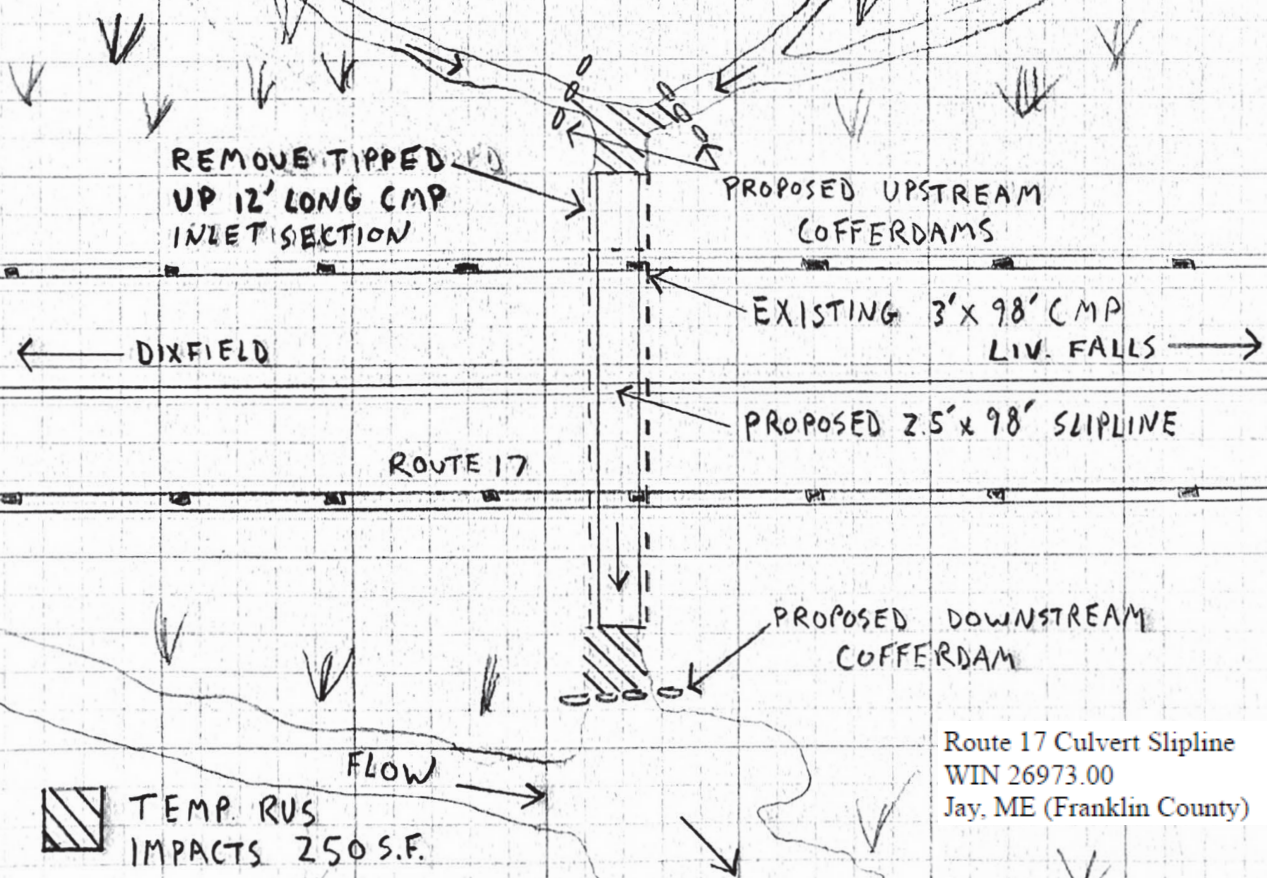 REMOVE TIPPED
UP 12' LONG CMP
INLET SECTION
PROPOSED UPSTREAM
COFFERDAMS
EXISTING 3' X 98' CMP
DIXFIELD
LIV. FALLS
PROPOSED 2.5' x 98' SLIPLINE
ROUTE 17
PROPOSED DOWNSTREAM
COFFERDAM
FLOW
TEMP. RUS
IMPACTS 250 S.F.
Route 17 Culvert Slipline
WIN 26973.00
Jay, ME (Franklin County)